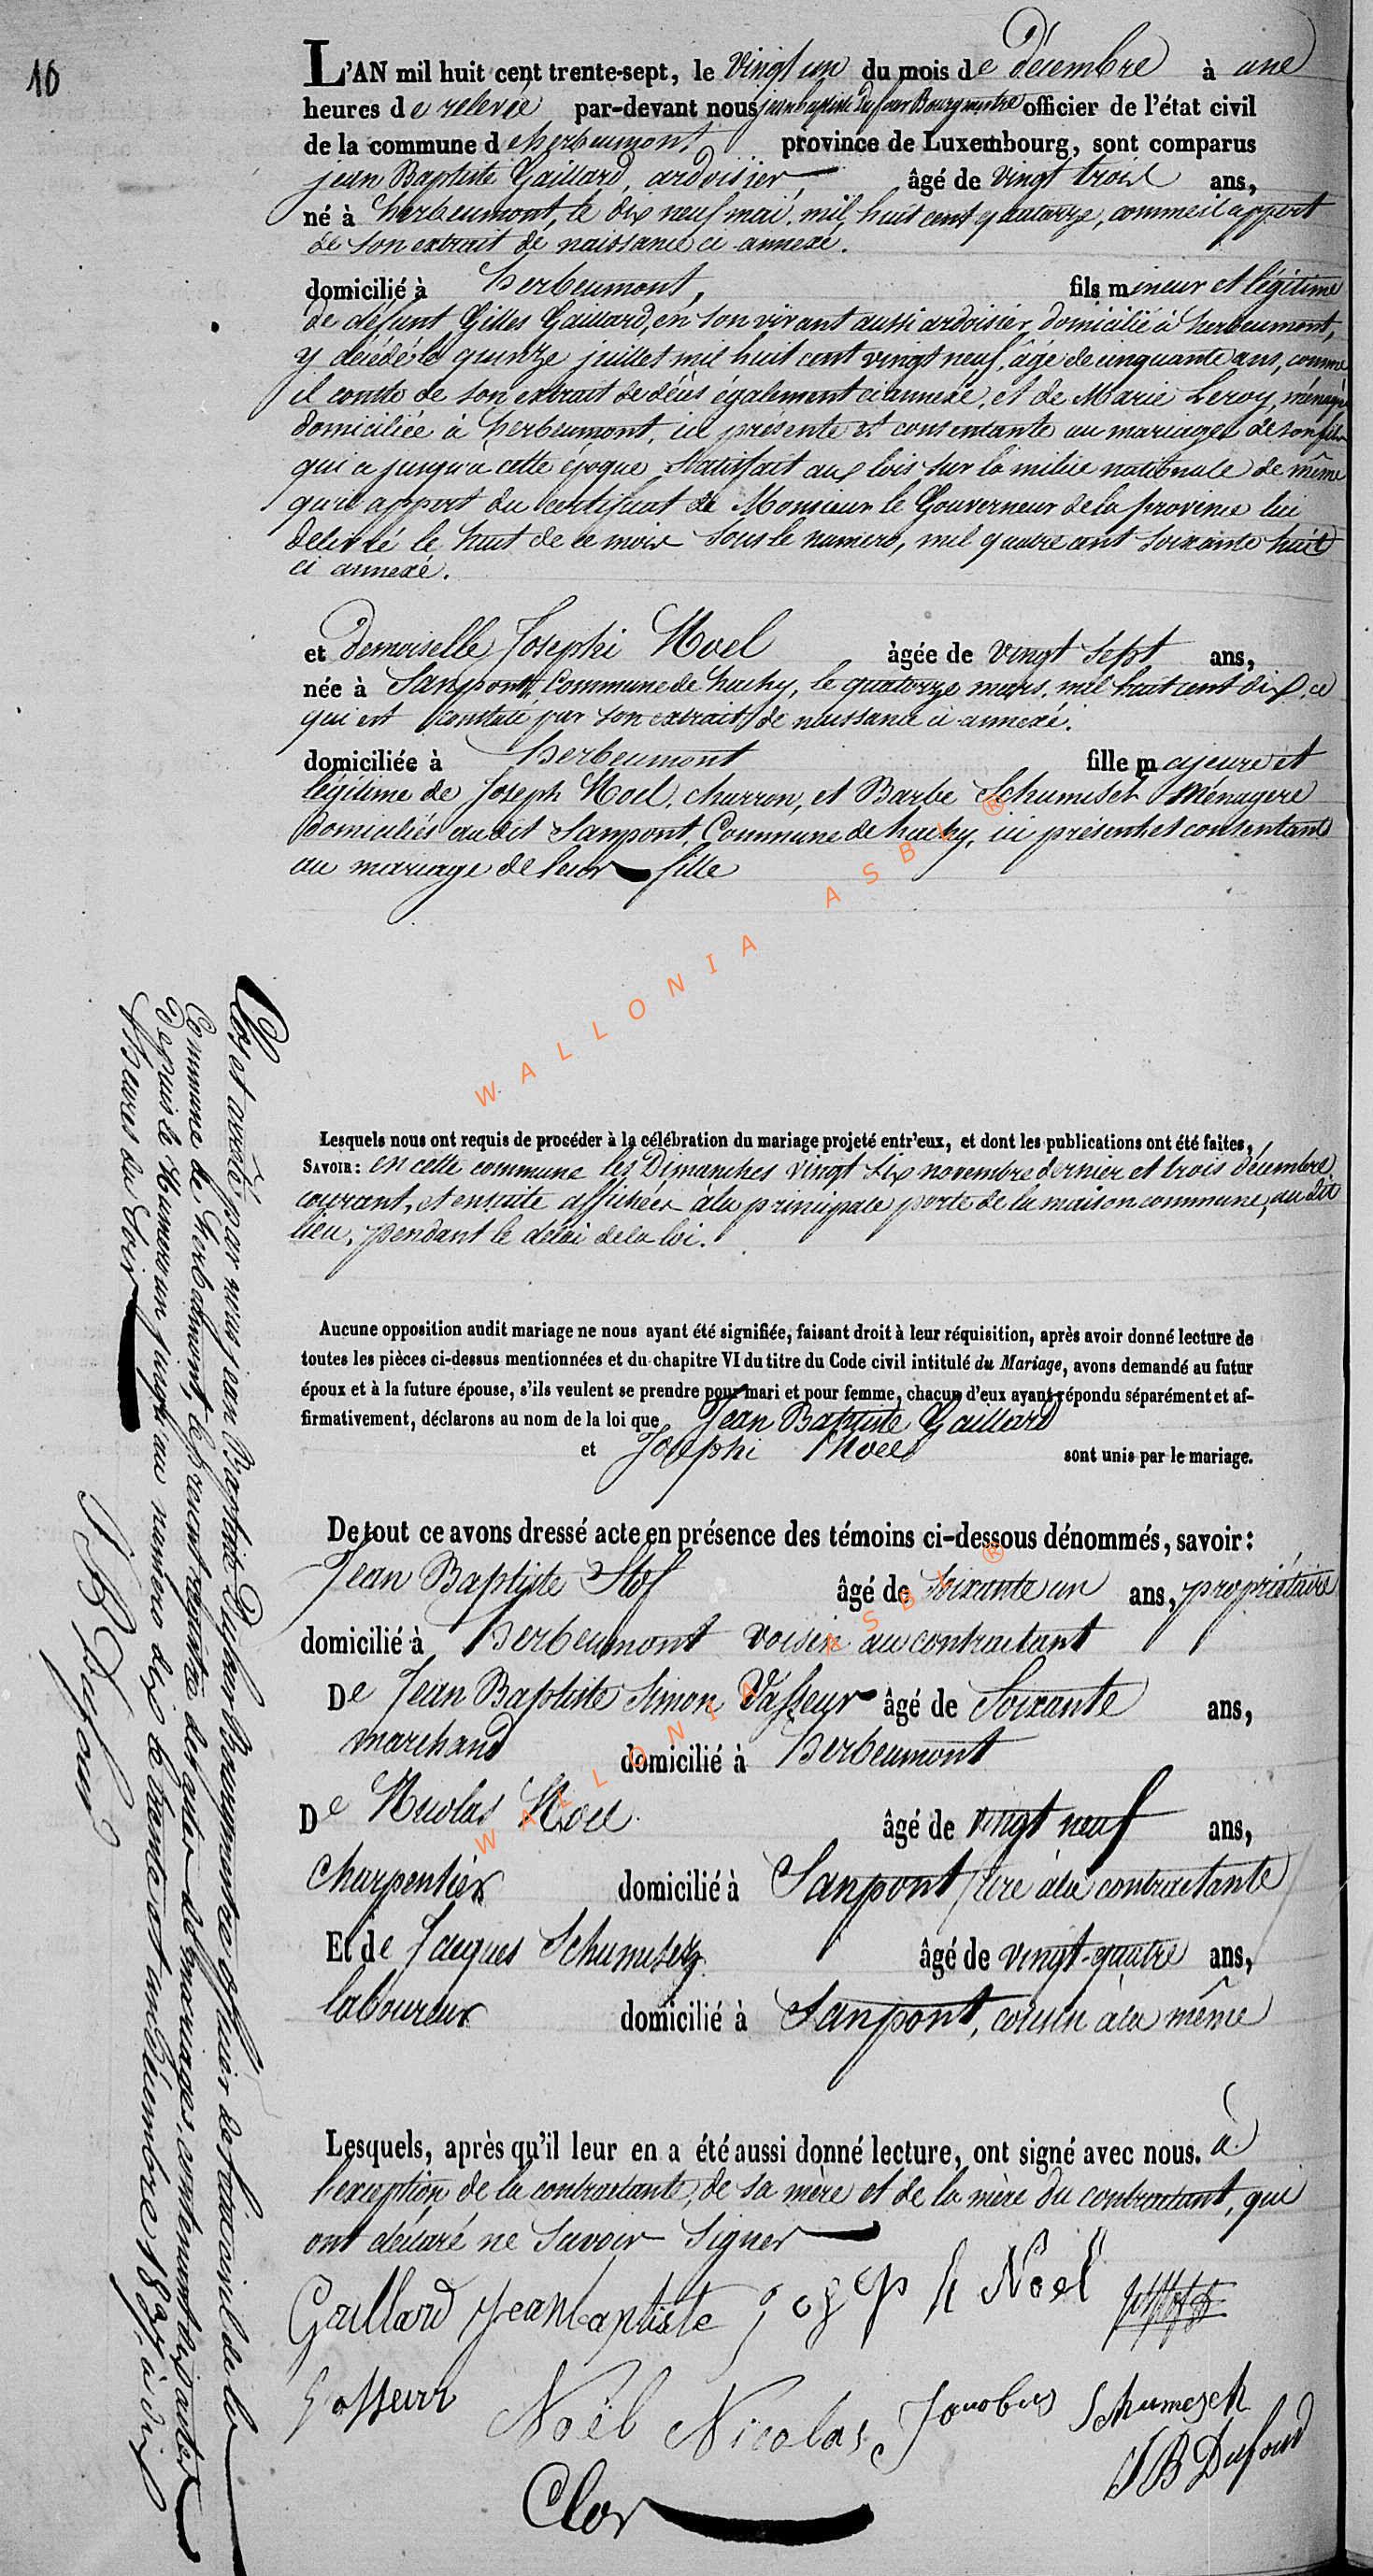 10
L'AN mil huit cent trente-sept, le vingt un du mois de décembre à une
heures de relevée par-devant nous jean baptiste Dufour Bourgmestre officier de l'état civil
de la commune d'herbeumont province de Luxembourg, sont comparus
jean Baptiste Gaillard, ardoisier, âgé de vingt trois ans,
né à herbeumont, le dix neuf mai, mil huit cent quatorze, comme il appert
de son extrait de naissance ci annexé.
domicilié à herbeumont, fils mineur et légitime
de défunt Gilles Gaillard, en son vivant aussi ardoisier domicilié à herbeumont,
y décédé le quinze juillet mil huit cent vingt neuf, âgé de cinquante ans, comme
il conste de son extrait de décès également ci annexé, et de Marie Leroy, ménagère
domiciliée à herbeumont, ici présente et consentante au mariage de son fils
qui a jusqu'à cette époque satisfait aux lois sur la milice nationale de même
qu'il appert du certificat de Monsieur le Gouverneur de la province lui
délivré le huit de ce mois sous le numéro, mil quatre cent soixante huit
ci annexé.
et Demoiselle Josephi Noel âgée de vingt sept ans,
née à Sanpont, Commune de hachy, le quatorze mars, mil huit cent dix, ce
qui est constaté par son extrait de naissance ci annexé.
domiciliée à herbeumont fille majeure et
légitime de Joseph Noel, charron, et Barbe Schumesch Ménagère
domiciliés audit Sanpont, Commune de hachy, ici présent et consentant
au mariage de leur fille
WALLONIA ASBL ®
Lesquels nous ont requis de procéder à la célébration du mariage projeté entr'eux, et dont les publications ont été faites,
SAVOIR: en cette commune les Dimanches vingt six novembre dernier et trois décembre
courant, et ensuite affichées à la principale porte de la maison commune, au dit
lieu, pendant le délai de la loi.
Aucune opposition audit mariage ne nous ayant été signifiée, faisant droit à leur réquisition, après avoir donné lecture de
toutes les pièces ci-dessus mentionnées et du chapitre VI du titre du Code civil intitulé du Mariage, avons demandé au futur
époux et à la future épouse, s'ils veulent se prendre pour mari et pour femme, chacun d'eux ayant répondu séparément et af-
firmativement, déclarons au nom de la loi que Jean Baptiste Gaillard
et Josephi Noel sont unis par le mariage.
De tout ce avons dressé acte en présence des témoins ci-dessous dénommés, savoir:
Jean Baptiste Stof âgé de soixante un ans, propriétaire
domicilié à herbeumont voisin au contractant
De Jean Baptiste Simon Vasseur âgé de Soixante ans,
marchand domicilié à herbeumont
De Nicolas Noel âgé de vingt neuf ans,
charpentier domicilié à Sanpont frère à la contractante
Et de Jacques Schumesch âgé de vingt-quatre ans,
laboureur domicilié à Sanpont, cousin à la même
WALLONIA ASBL ®
Lesquels, après qu'il leur en a été aussi donné lecture, ont signé avec nous. à
l'exception de la contractante, de sa mère et de la mère du contractant, qui
ont déclaré ne savoir signer
Gaillard Jean baptiste Josep h Noël
Vasseur Noël Nicolas Jacobus Schumesch
J B Dufour
Clos
Clos et arrêté par nous jean Baptiste Dufour Bourgmestre officier de l'état civil de la
Commune de herbeumont, le présent registre des actes de mariages, contenant dix actes
depuis le numéro un jusqu'au numéro dix le trente et un décembre 1837, à dix
heures du soir
J B Dufour